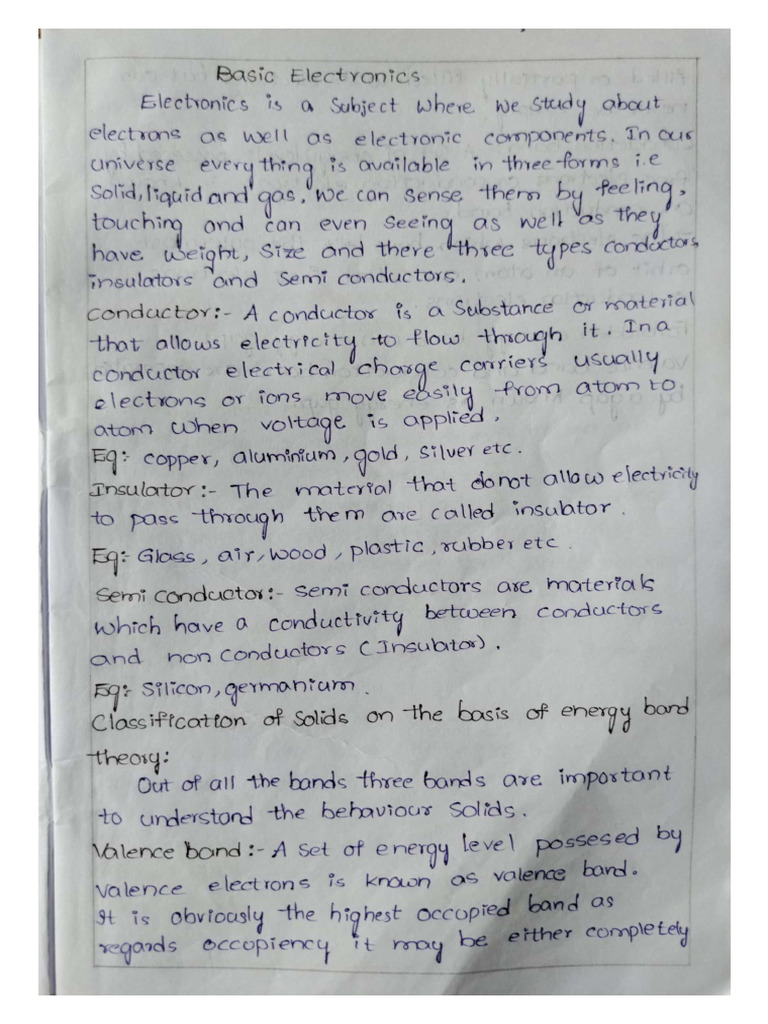 Basic Electronics
Electronics is a Subject where we study about
electrons as well as electronic components. In our
universe every thing is available in three forms i.e
Solid, liquid and gas. We can sense them by feeling,
touching and can even seeing as well as they
have weight, Size and there three types conductors,
insulators and Semi conductors.
Conductor:- A conductor is a Substance or material
that allows electricity to flow through it. In a
conductor electrical charge carriers usually
electrons or ions move easily from atom to
atom when voltage is applied.
Eg:- copper, aluminium, gold, silver etc.
Insulator:- The material that donot allow electricity
to pass through them are called insulator.
Eg:- Glass, air, wood, plastic, rubber etc.
Semi conductor:- Semi conductors are materials
which have a conductivity between conductors
and non conductors (Insulator).
Eg:- Silicon, germanium.
Classification of Solids on the basis of energy band
theory:
Out of all the bands three bands are important
to understand the behaviour Solids.
Valence band:- A Set of energy level possesed by
valence electrons is known as valence band.
It is obviously the highest occupied band as
regards occupiency it may be either completely